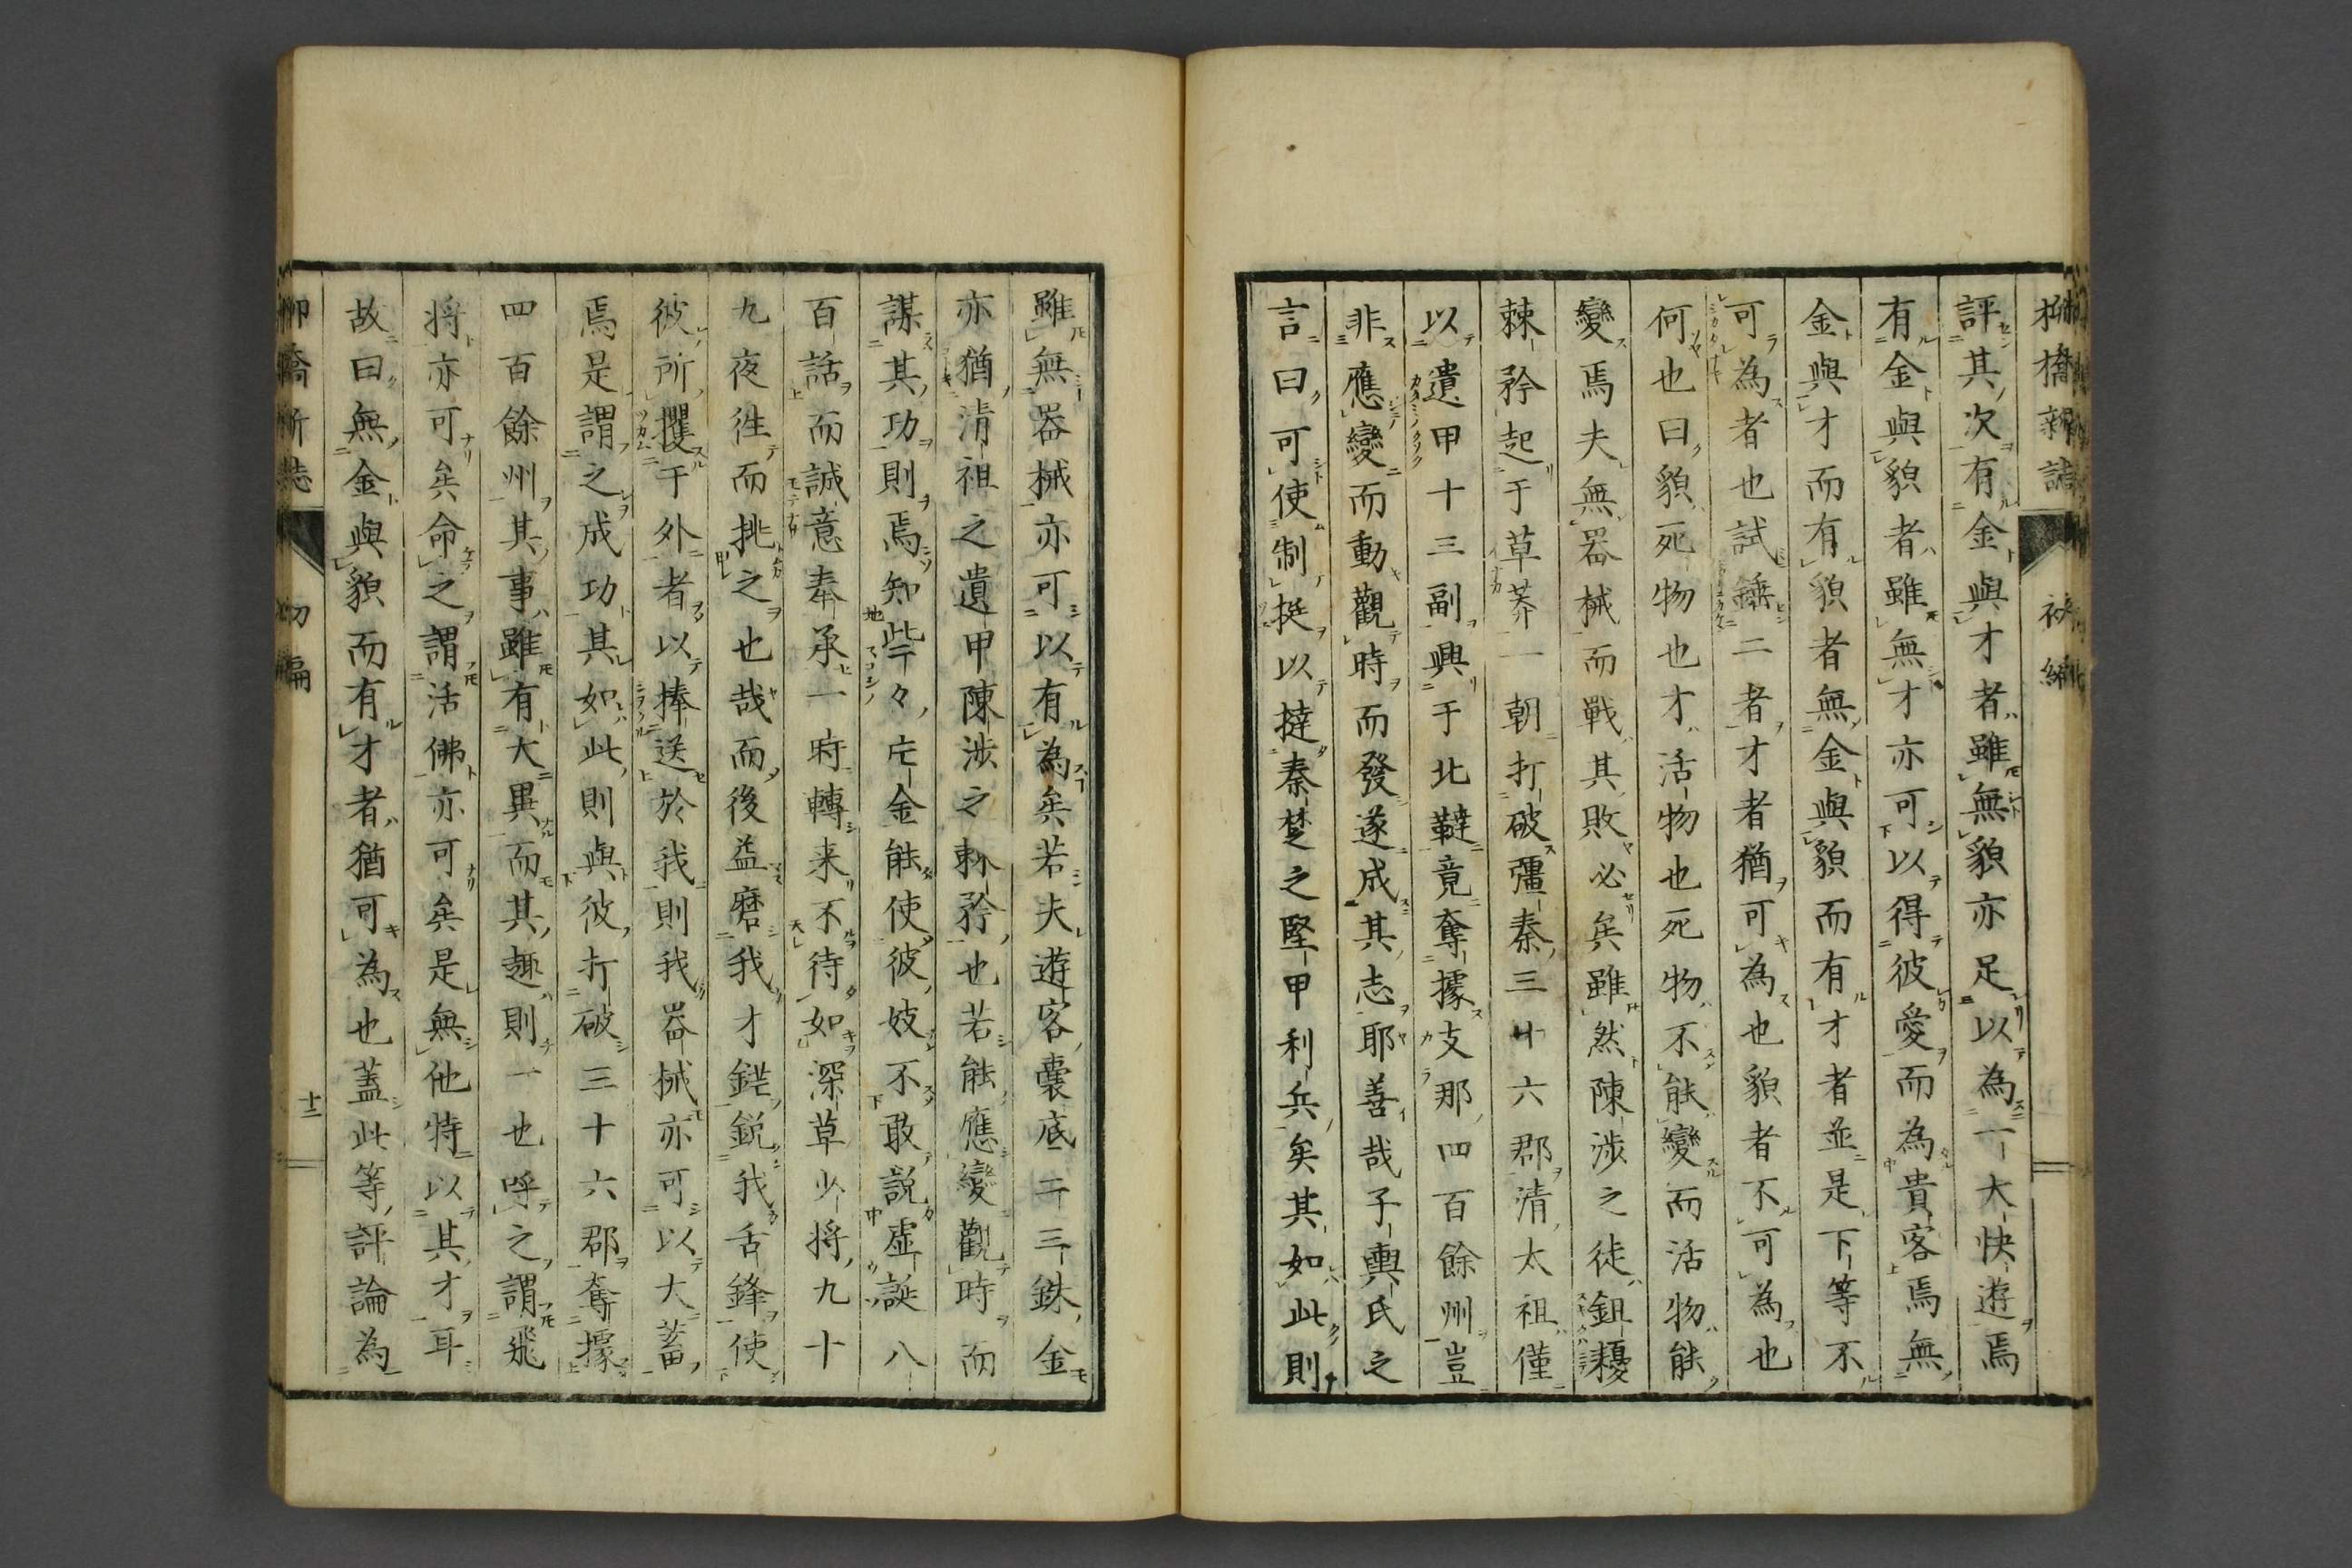 柳橋新誌
初編
評其次有金與才者雖無貌亦足以為一大快遊焉
有金與貌者雖無才亦可以得彼愛而為貴客焉無
金與才而有貌者無金與貌而有才者並是下等不
可為者也試錘二者才者猶可為也貌者不可為也
何也曰貌死物也才活物也死物不能變而活物能
變焉夫無器械而戰其敗必矣雖然陳涉之徒鉏耰
棘矜起于草莽一朝打破彊秦三十六郡清太祖僅
以遺甲十三副興于北韃竟奪據支那四百餘州豈
非應變而動觀時而發遂成其志耶善哉子輿氏之
言曰可使制挺以撻秦楚之堅甲利兵矣其如此則
雖無器械亦可以有為矣若夫遊客囊底二三銖金
亦猶清祖之遺甲陳涉之棘矜也若能應變觀時而
謀其功則焉知些々庀金能使彼妓不敢説虛誕八
百話而誠意奉承一時轉来不待如深草少將九十
九夜徃而挑之也哉而後益磨我才鋩鋭我舌鋒使
彼所攫于外者以捧送於我則我器械亦可以大蓄
焉是謂之成功其如此則與彼打破三十六郡奪據
四百餘州其事雖有大異而其趣則一也呼之謂飛
将亦可矣命之謂活佛亦可矣是無他特以其才耳
故曰無金與貌而有才者猶可為也蓋此等評論為
柳橋新誌
初編
十二